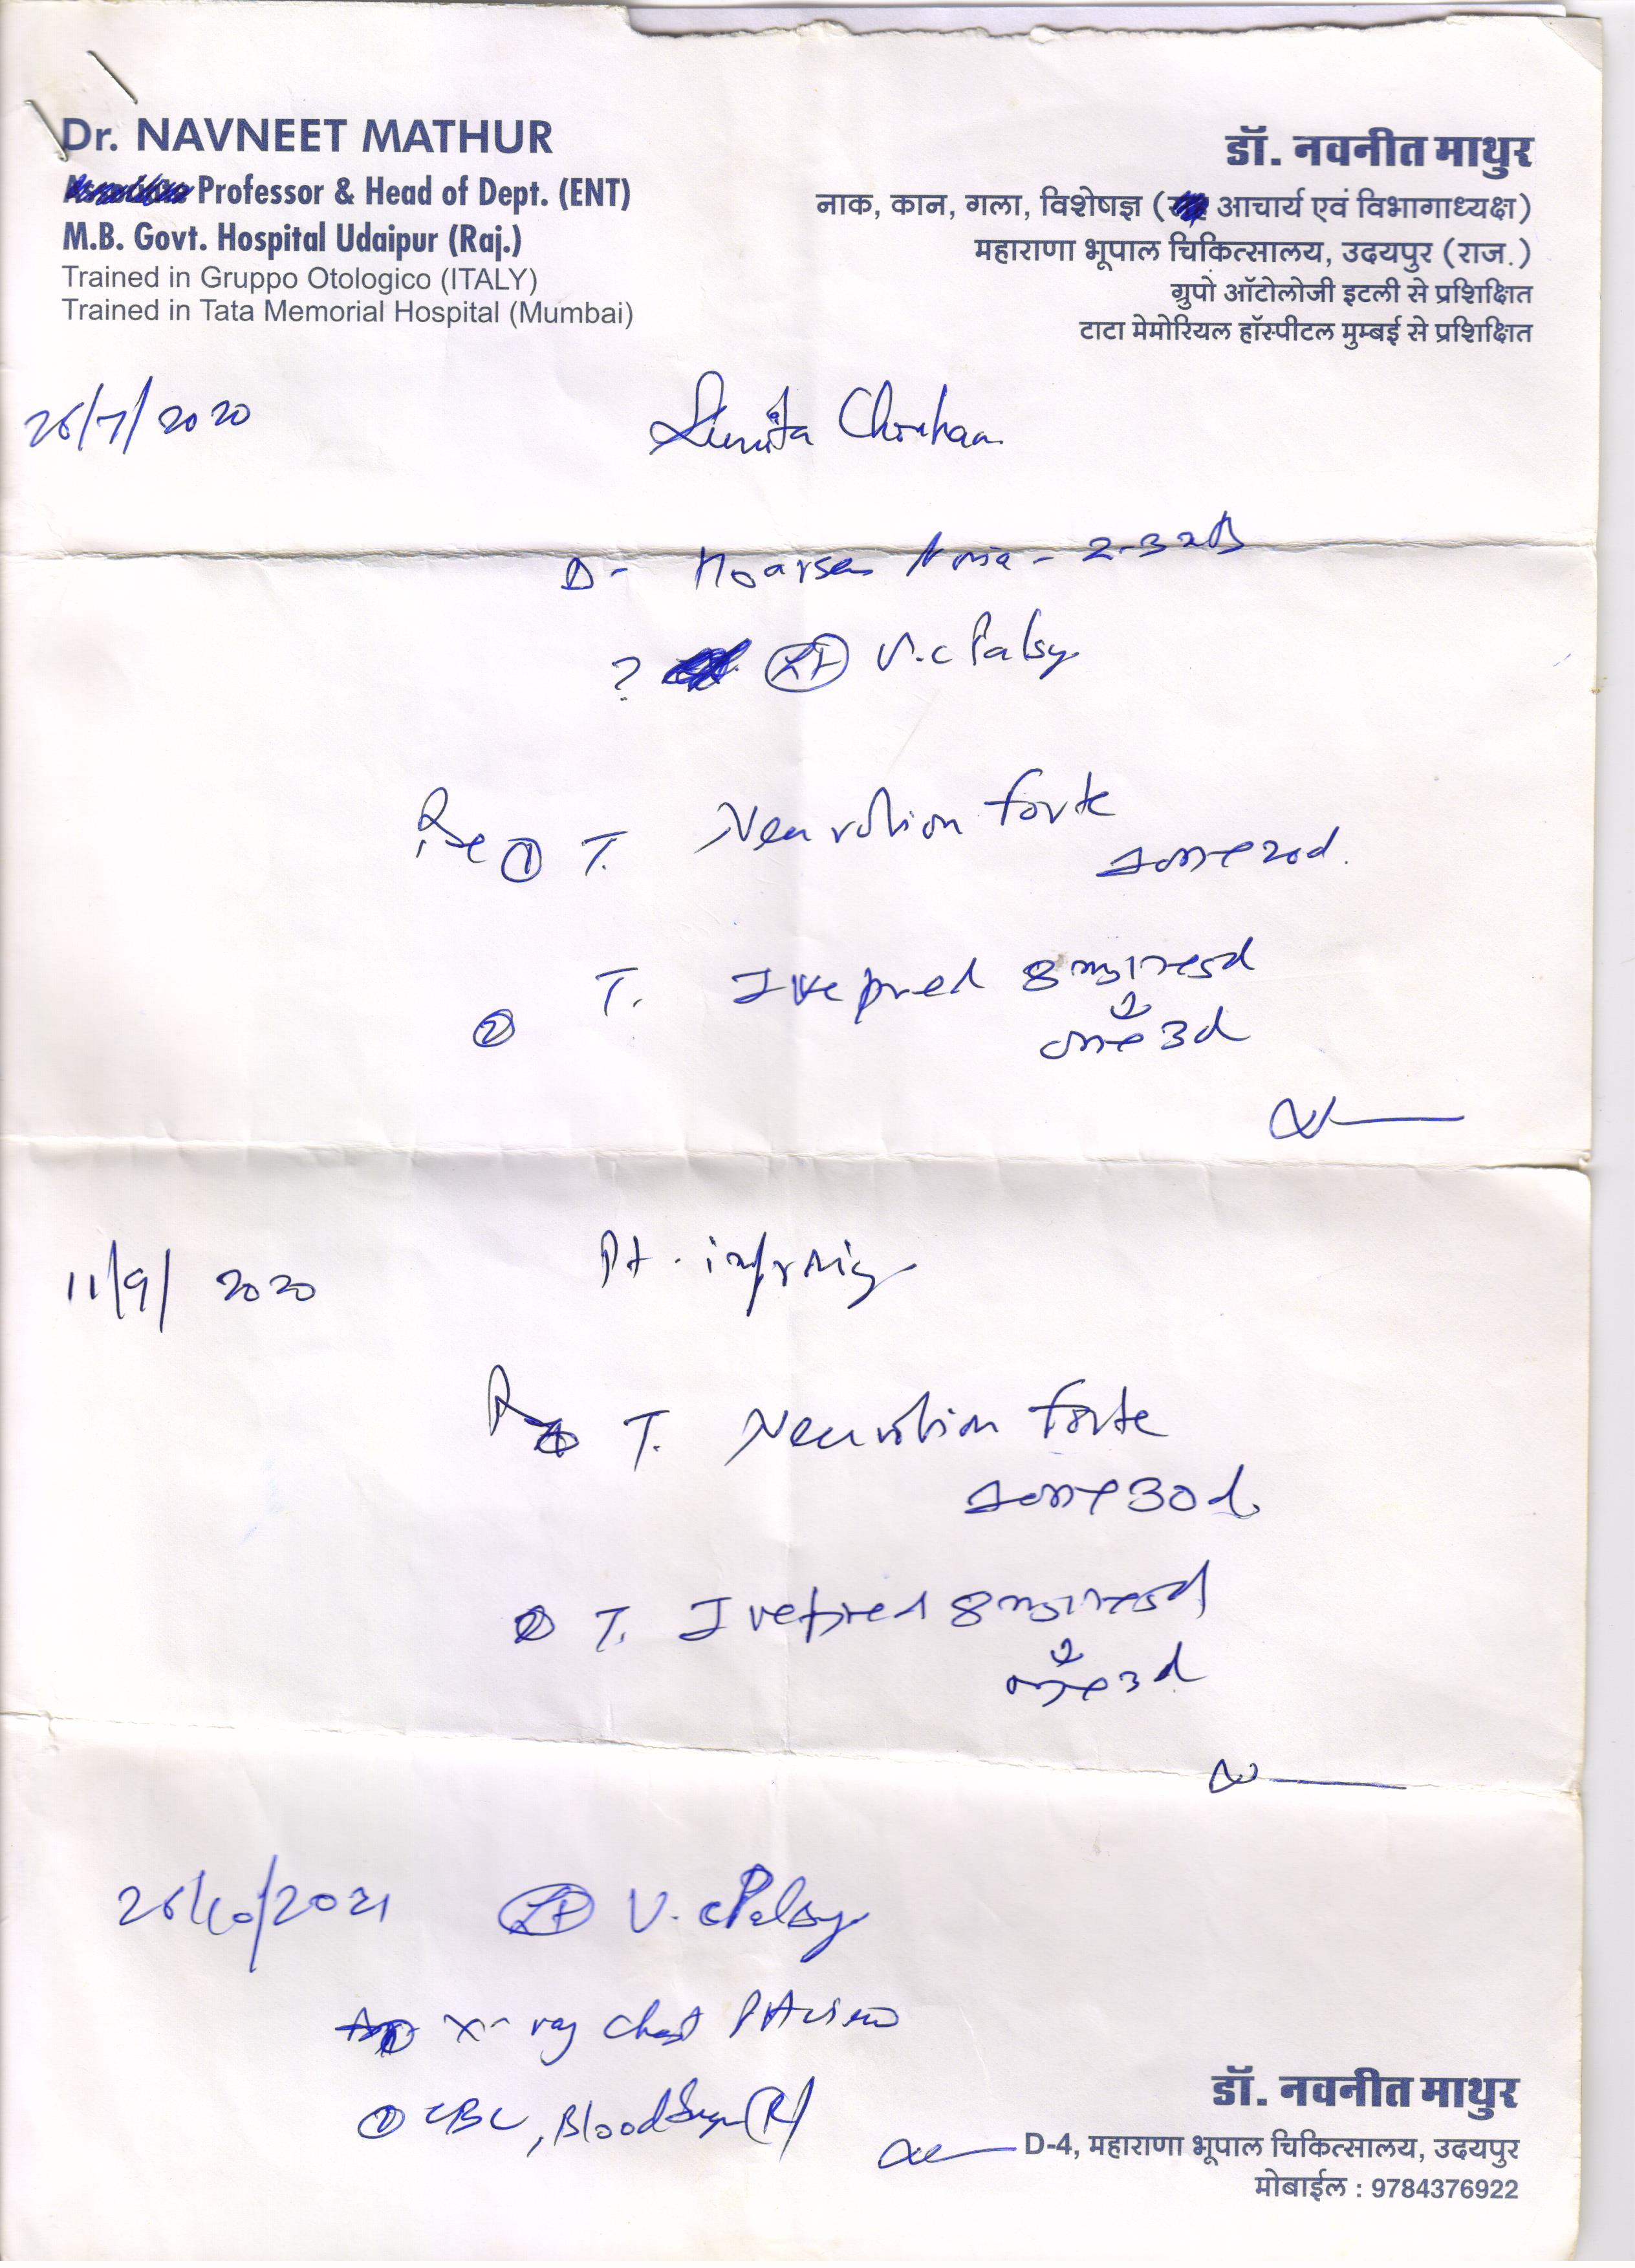 Dr. NAVNEET MATHUR
Professor & Head of Dept. (ENT)
M.B. Govt. Hospital Udaipur (Raj.)
Trained in Gruppo Otologico (ITALY)
Trained in Tata Memorial Hospital (Mumbai)
डॉ. नवनीत माथुर
नाक, कान, गला, विशेषज्ञ ( आचार्य एवं विभागाध्यक्ष)
महाराणा भूपाल चिकित्सालय, उदयपुर (राज.)
ग्रुपो ऑटोलोजी इटली से प्रशिक्षित
टाटा मेमोरियल हॉस्पीटल मुम्बई से प्रशिक्षित
26/7/2020 Sunita Chouhan
Hoarse - 2-3
? Lt V.c Palsy
① T. Neurobion forte
20d.
② T. Ivepred 8mg 5d
3d
11/9/2020 Pt. improving
T. Neurobion forte
30d
② T. Ivepred 8mg 5d
3d
26/10/2021 Lt V.c Palsy
① X-ray chest PA view
② CBC, Blood Sugar (R)
डॉ. नवनीत माथुर
D-4, महाराणा भूपाल चिकित्सालय, उदयपुर
मोबाईल : 9784376922